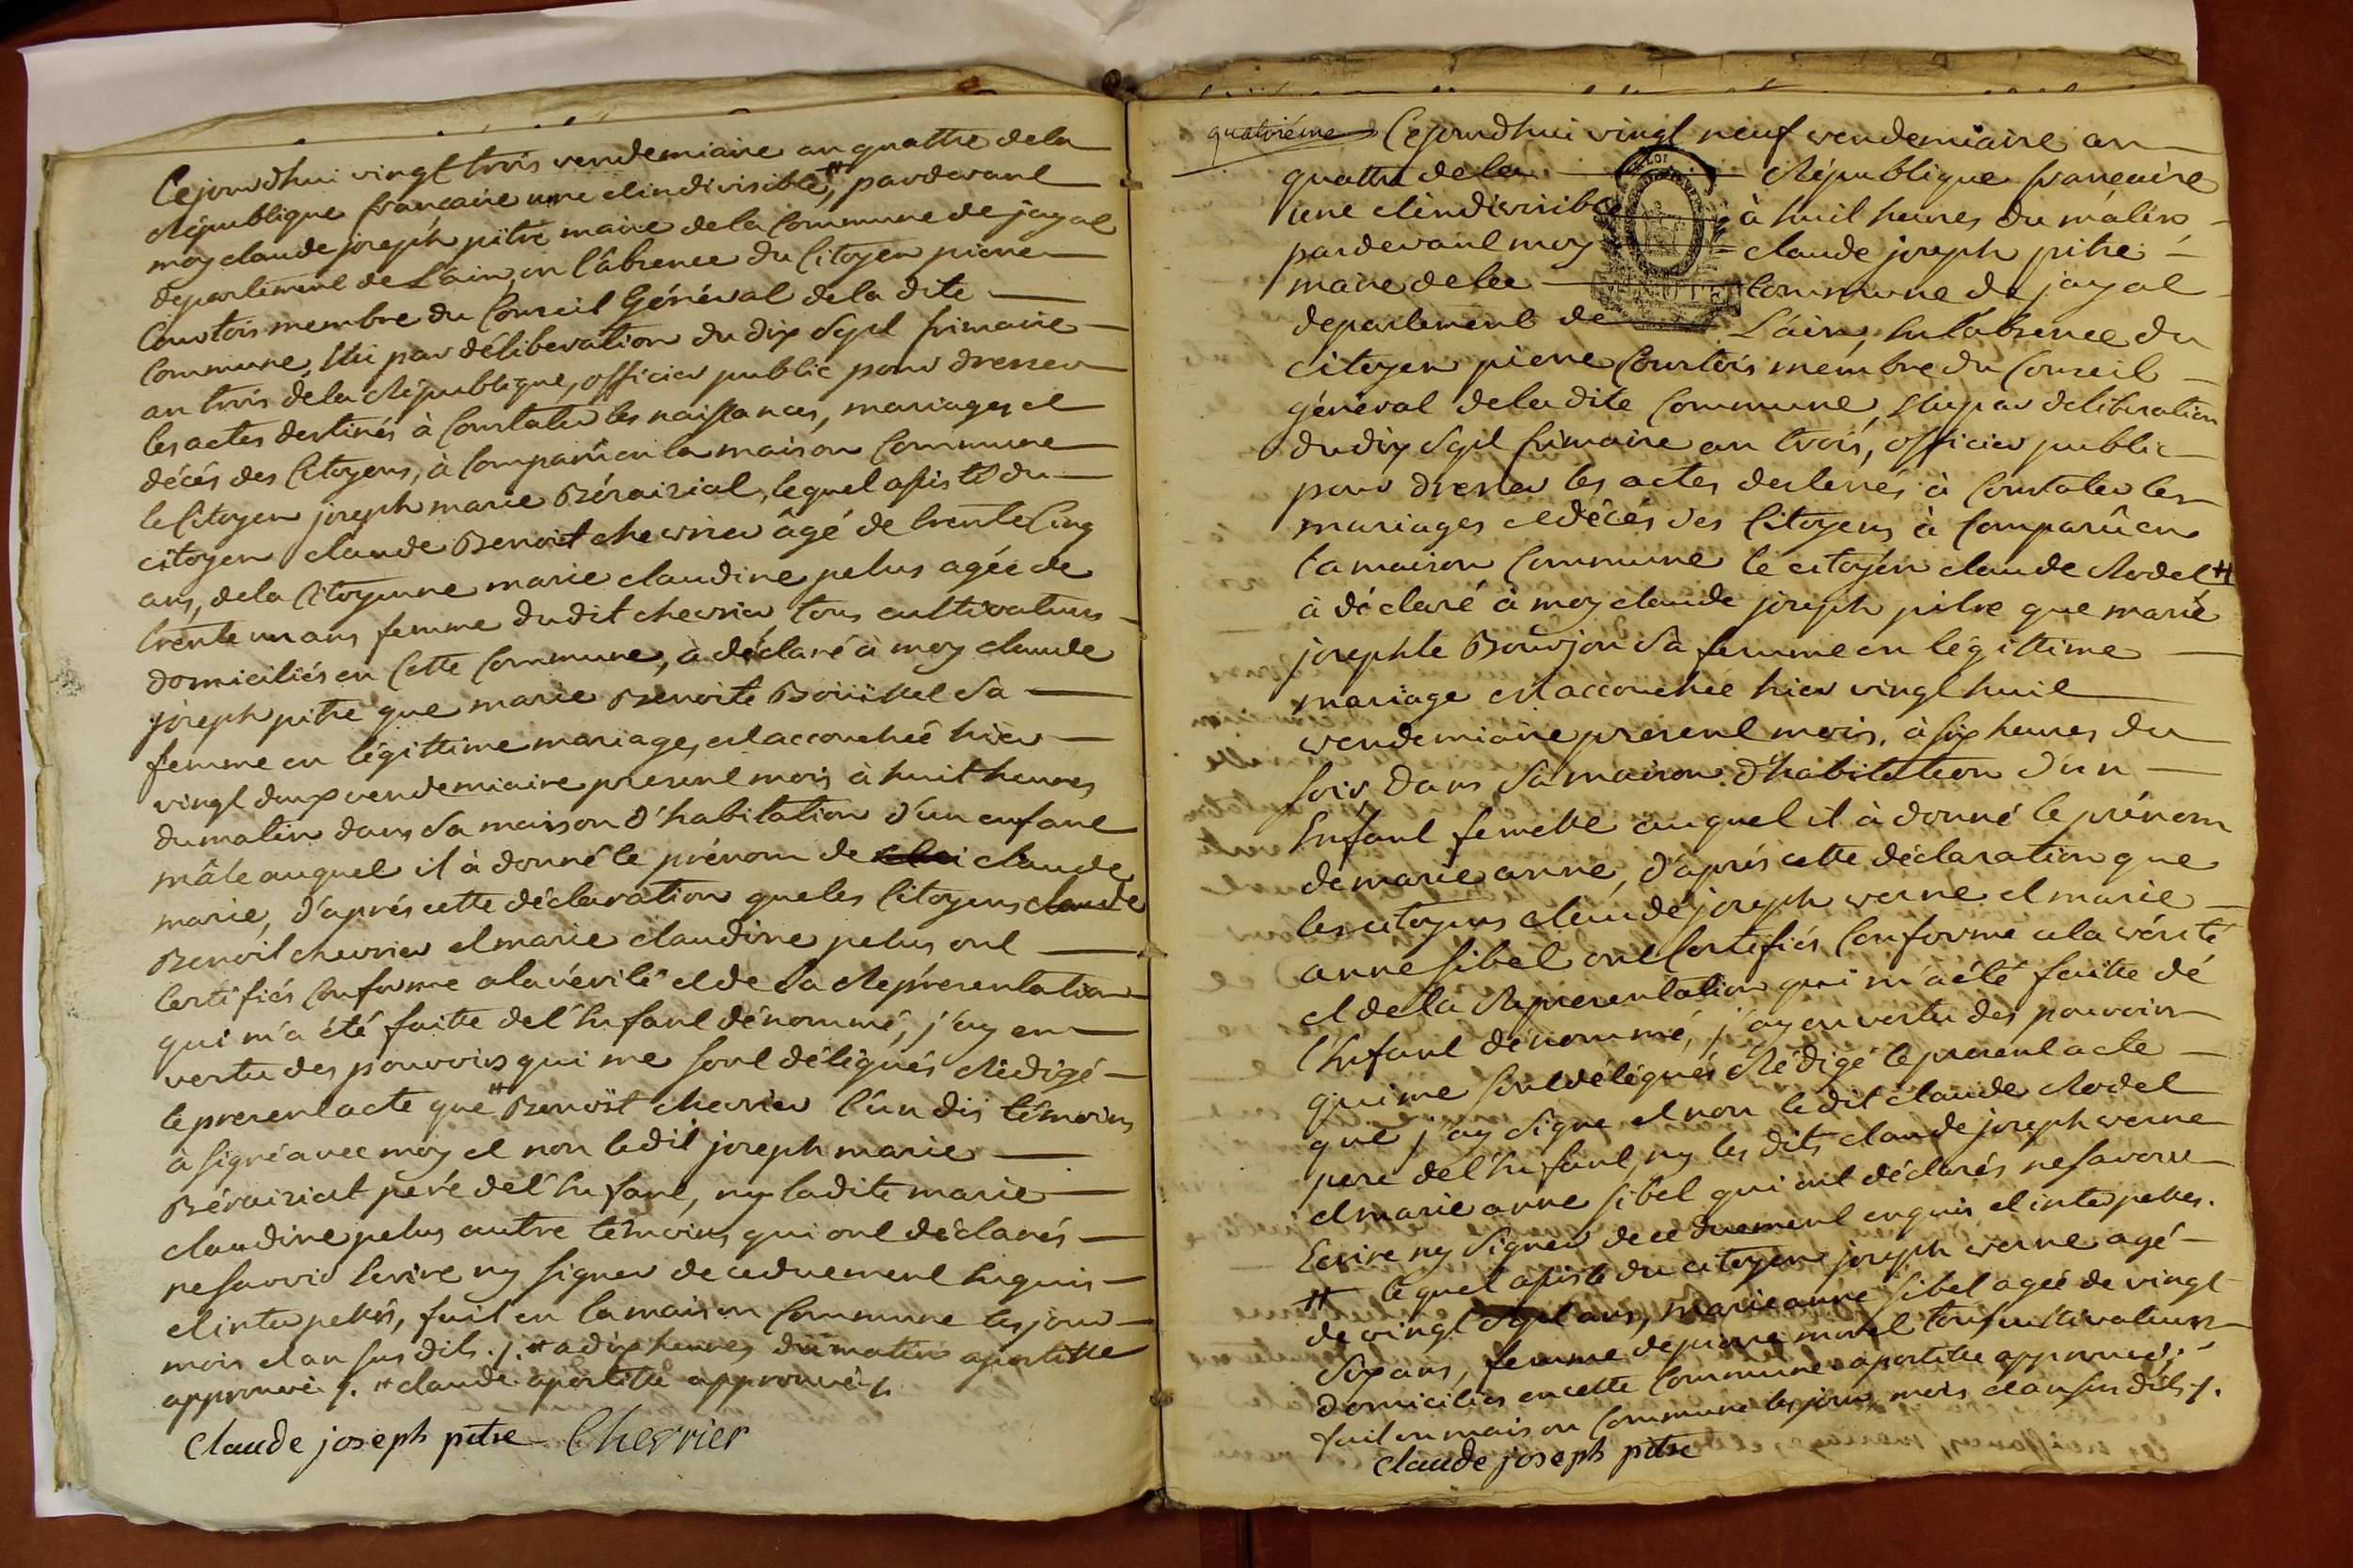 Cejourdhui vingt trois vendemiaire an quattre dela
République francaire une etindivisible,# pardevant
moy claude joseph pitre maire dela Commune de jayat
departement de L'ain, en l'absence du Citoyen pierre
Courtois membre du Conseil Général dela dite
Commune, Elu par déliberation du dix Sept frimaire
an trois dela République, officier public pour dresser
les actes destinés à Constater les naissances, mariages et
décés des Citoyens, à Comparû en la maison Commune
le Citoyen joseph marie Bérairiat, lequel assisté du
citoyen claude Benoit chevrier âgé de trente Cinq
ans, dela Citoyenne marie claudine pelus agée de
trente un ans femme dudit chevrier, tous cultivateurs
domiciliés en Cette Commune, à déclaré à moy claude
joseph pitre que marie Benoite Sa
femme en légittime mariage, est accouchée hier
vingt deux vendemiaire present mois à huit heures
du matin dans Sa maison d'habitation d'un enfant
mâle auquel il à donné le prénom de claude
marie, d'aprés cette déclaration que les Citoyens claude
Benoit chevrier et marie claudine pelus ont
Certifiés Conforme ala vérité et de La Répresentation
qui m'a été faitte del'Enfant dénommé, j'ay en
vertu des pouvoirs qui me sont délégués Rédigé
le present acte que # Benoït chevrier l'un dis témoins
à signé avec moy et non ledit joseph marie
Bérairiat peré del'Enfant, ny ladite marie
claudine pelus autre témoins, qui ont déclarés
ne savoir Ecrire ny signer de ce duement Enquis
et interpellés, fait en la maison Commune les jour
mois et an sus dits ./. # a dix heures du matin apostille
approuvé ./. # claude apostille approuvé ./.
claude joseph pitre Chevrier
quatriéme Cejourdhui vingt neuf vendemiaire an
quattre dela République francaire
LOI
une etindivisible à huit heures du matin,
pardevant moy claude joseph pitre
maire dela Commune de jayat
departement de L'ain, En l'absence du
citoyen pierre Courtois membre du Conseil
général dela dite Commune, Elu par déliberation
du dix Sept frimaire an trois, officier public
pour dresser les actes destinés à Constater les
mariages et décés des Citoyens, à Comparû en
la maison Commune le citoyen claude Rodet #
à déclaré à moy claude joseph pitre que marie
josephte Bourjon Sa femme en légittime
mariage est accouchée hier vingt huit
vendemiaire present mois, à six heures du
soir dans Sa maison d'habitation d'un
Enfant femelle auquel il à donné le prénom
de marie anne, d'aprés cette déclaration que
les citoyens claude joseph verne et marie
anne sibel ont Certifiés Conforme ala vérité
et dela Representation qui m'a été faitte dé
l'Enfant dénommé, j'ay en vertu des pouvoirs
qui me sont délégués Rédigé le present acte
que j'ay Signé et non ledit claude Rodet
pere del'Enfant, ny les dits claude joseph verne
et marie anne sibel qui ont déclarés ne savoir
Ecrire ny Signer de ce duement enquis et interpellés.
# lequel assisté du citoyen joseph verne agé
de vingt Sept ans, marie anne sibel agée de vingt
Six ans, femme de pierre morel tous cultivateurs
domiciliés en cette Commune apostille approuvé,
fait en maison Commune les jour, mois et an sus dits ./.
claude joseph pitre